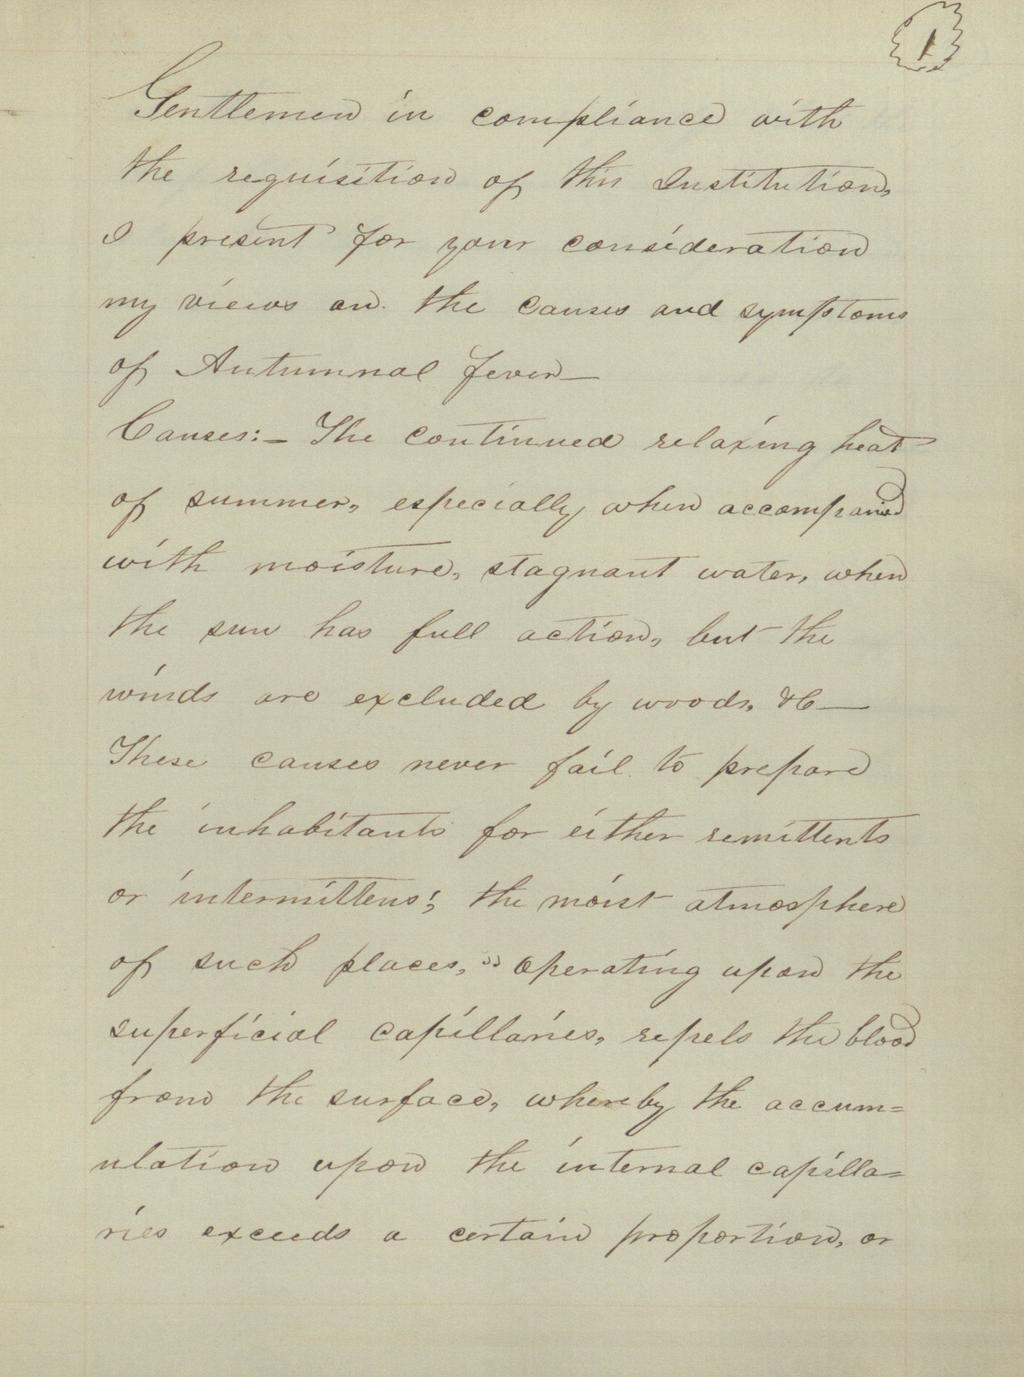 1
Gentlemen in compliance with
the requisition of this Institution,
I present for your consideration
my views on the causes and symptoms
of Autumnal fever—
Causes:— The continued relaxing heat
of summer, especially, when accompanied
with moisture, stagnant water, when
the sun has full action, but the
winds are excluded by woods, &C—
These causes never fail to prepare
the inhabitants for either remittents
or intermittens; the moist atmosphere
of such places, " operating upon the
superficial capillaries, repels the blood
from the surface, whereby the accum=
ulation upon the internal capilla=
ries exceeds a certain proportion, or